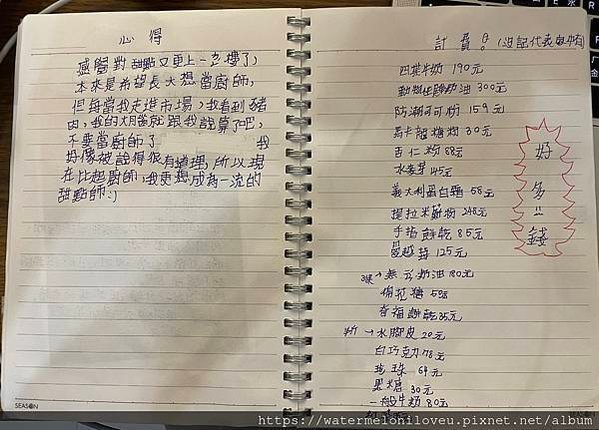 心得
感覺對甜點又更上一層樓了,
本來是希望長大想當廚師,
但每當我走進市場,我看到豬
肉,我的大腦就跟我說算了吧,
不要當廚師了 我
好像被說得很有道理,所以現
在比起廚師,我更想成為一流的
甜點師:)
計費。(沒記代表原本有)
四葉牛奶 190元
動物性鮮奶油 300元
防潮可可粉 159元
馬卡龍糖粉 30元
杏仁粉 88元
水麥芽 45元
義大利蛋白霜 58元
提拉米蘇粉 248元
手指餅乾 85元
蔓越莓 125元
無云奶油 180元
棉花糖 59元
奇福餅乾 35元
水餃皮 20元
白巧克力 78元
珍珠 64元
黑糖 30元
一般牛奶 80元
好多!!錢
SEASON
https://watermeloniloveu.pixnet.net/album